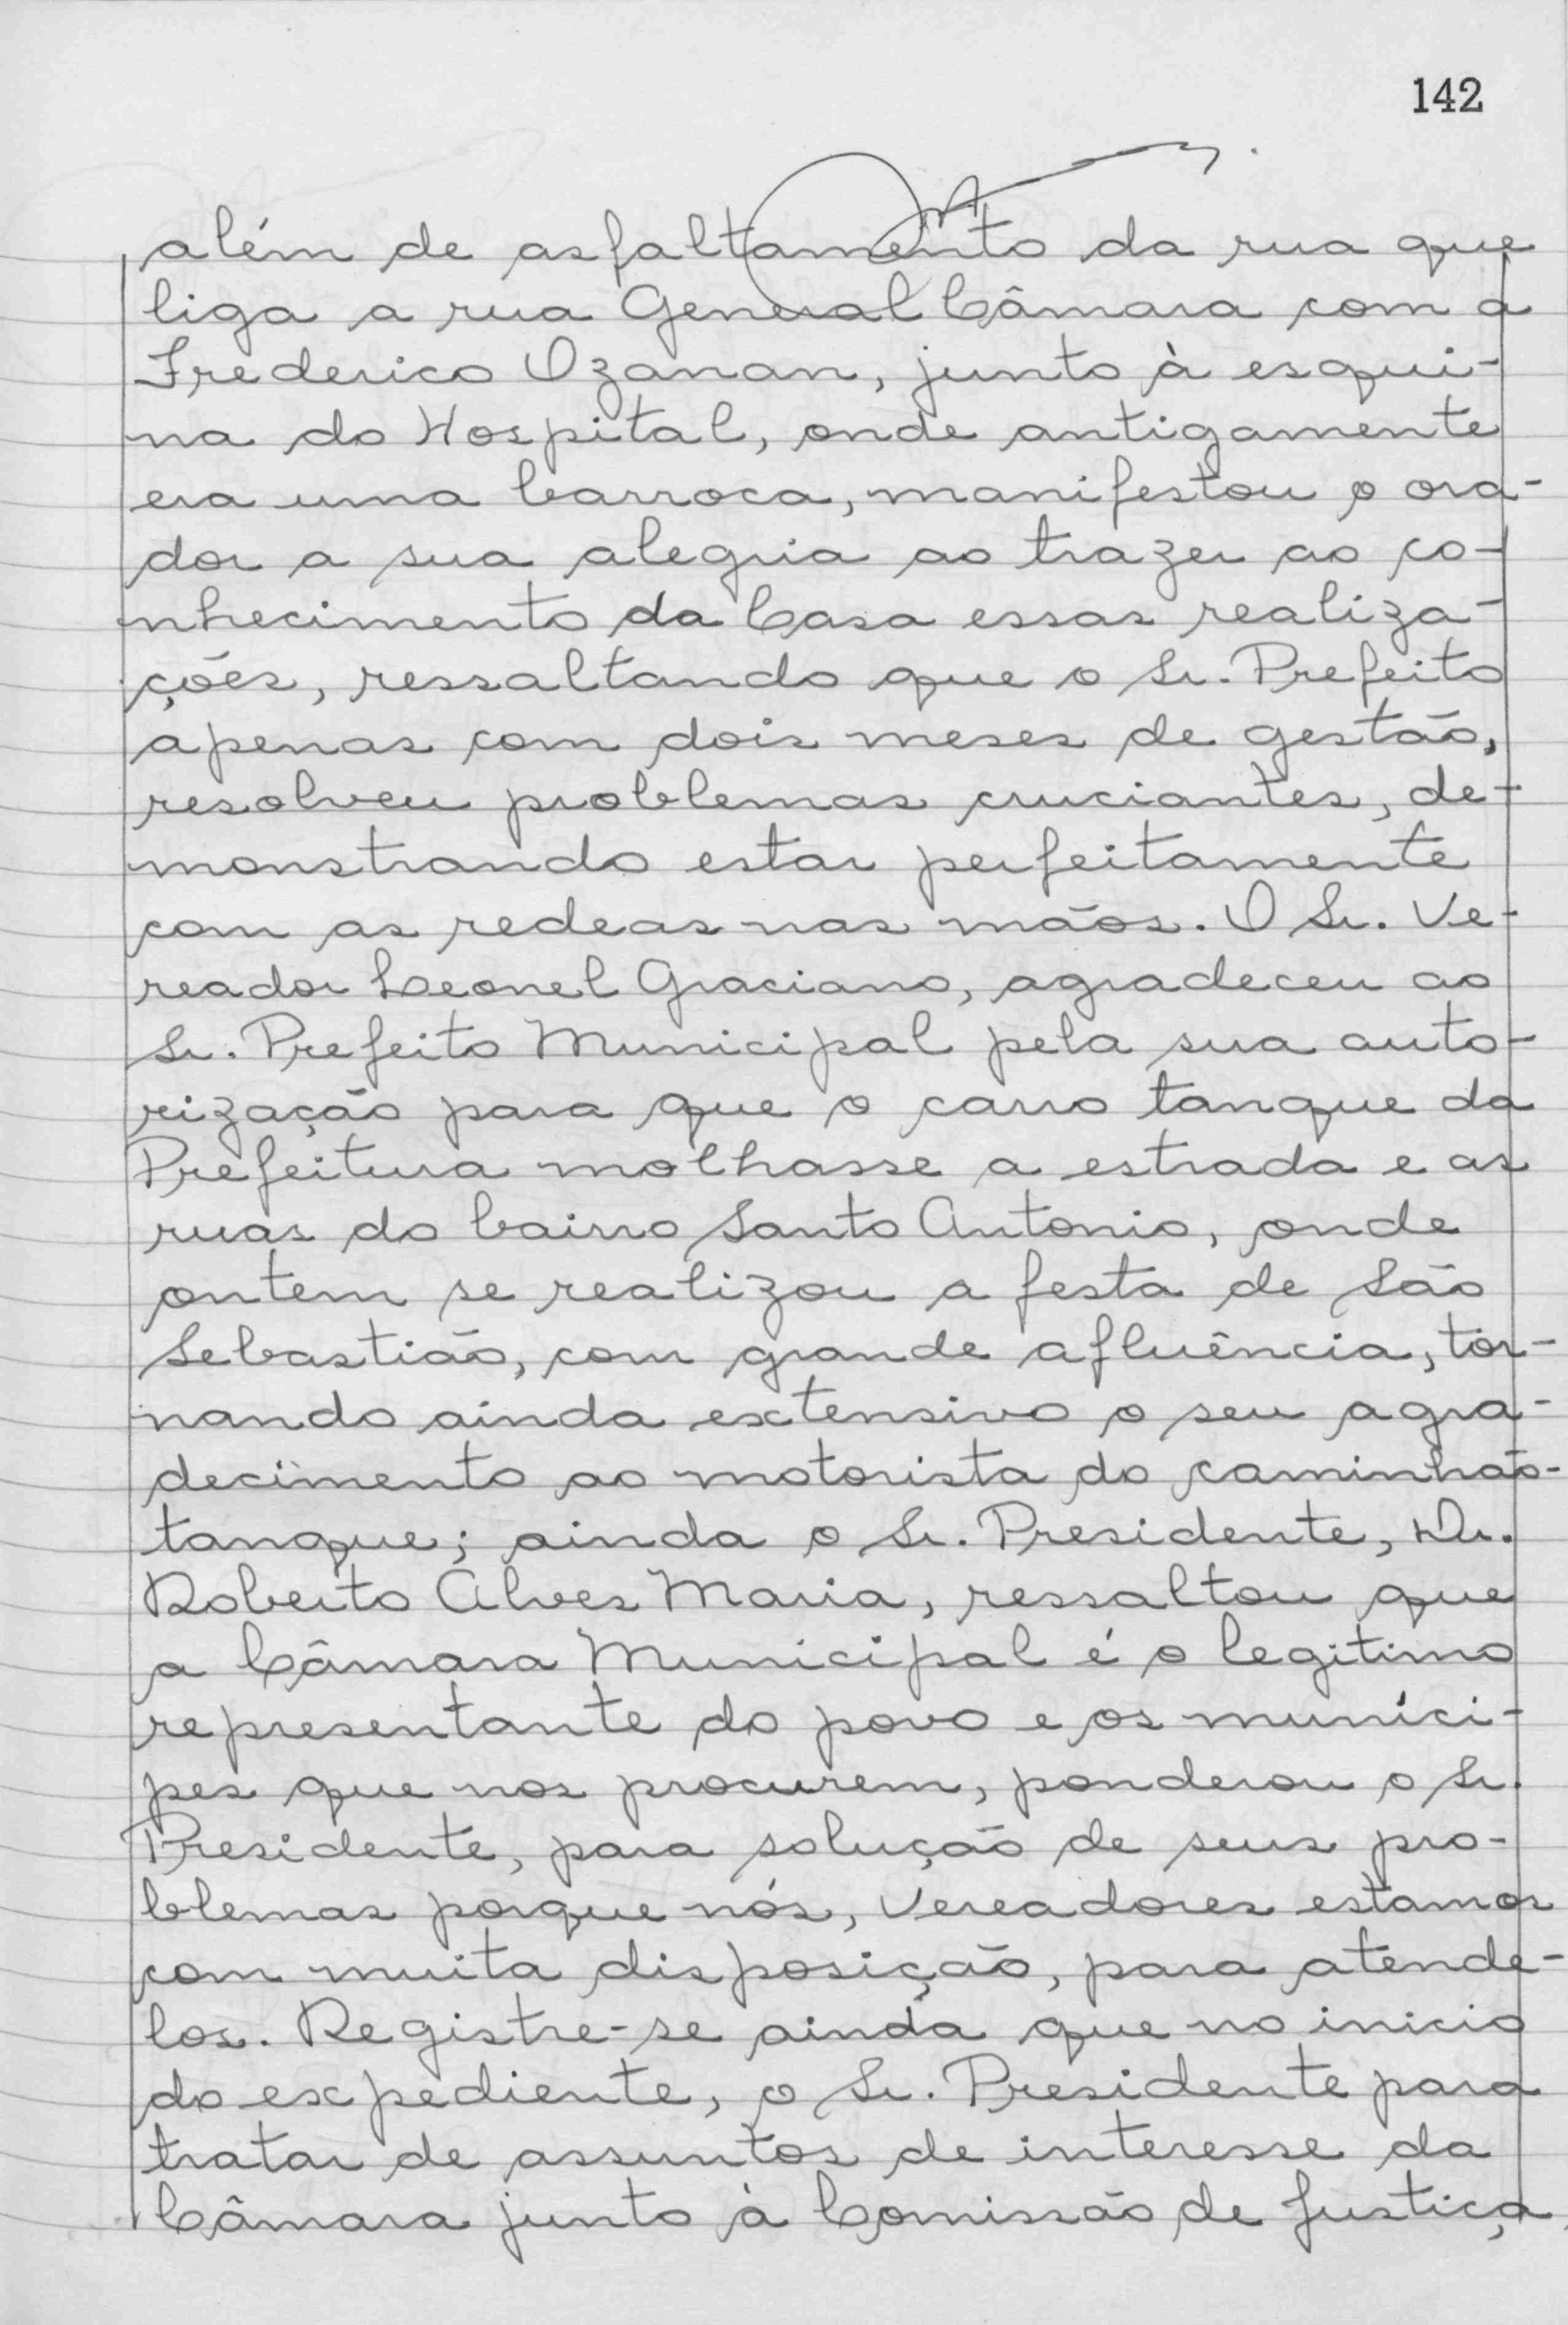 142
além de asfaltamento da rua que
liga a rua General Câmara com a
Frederico Ozanan, junto à esqui-
na do Hospital, onde antigamente
era uma barroca, manifestou o ora-
dor a sua alegria ao trazer ao co-
nhecimento da Casa essas realiza-
ções, ressaltando que o Sr. Prefeito
apenas com dois meses de gestão,
resolveu problemas cruciantes, de-
monstrando estar perfeitamente
com as redeas nas mãos. O Sr. Ve-
reador Leonel Graciano, agradeceu ao
Sr. Prefeito Municipal pela sua auto-
rização para que o carro tanque da
Prefeitura molhasse a estrada e as
ruas do bairro Santo Antonio, onde
ontem se realizou a festa de São
Sebastião, com grande afluência, tor-
nando ainda extensivo o seu agra-
decimento ao motorista do caminhão-
tanque; ainda o Sr. Presidente, Dr.
Roberto Alves Maria, ressaltou que
a Câmara Municipal é o legitimo
representante do povo e os muníci-
pes que nos procurem, ponderou o Sr.
Presidente, para solução de seus pro-
blemas porque nós, Vereadores estamos
com muita disposição, para atende-
los. Registre-se ainda que no inicio
do expediente, o Sr. Presidente para
tratar de assuntos de interesse da
Câmara junto à Comissão de Justiça